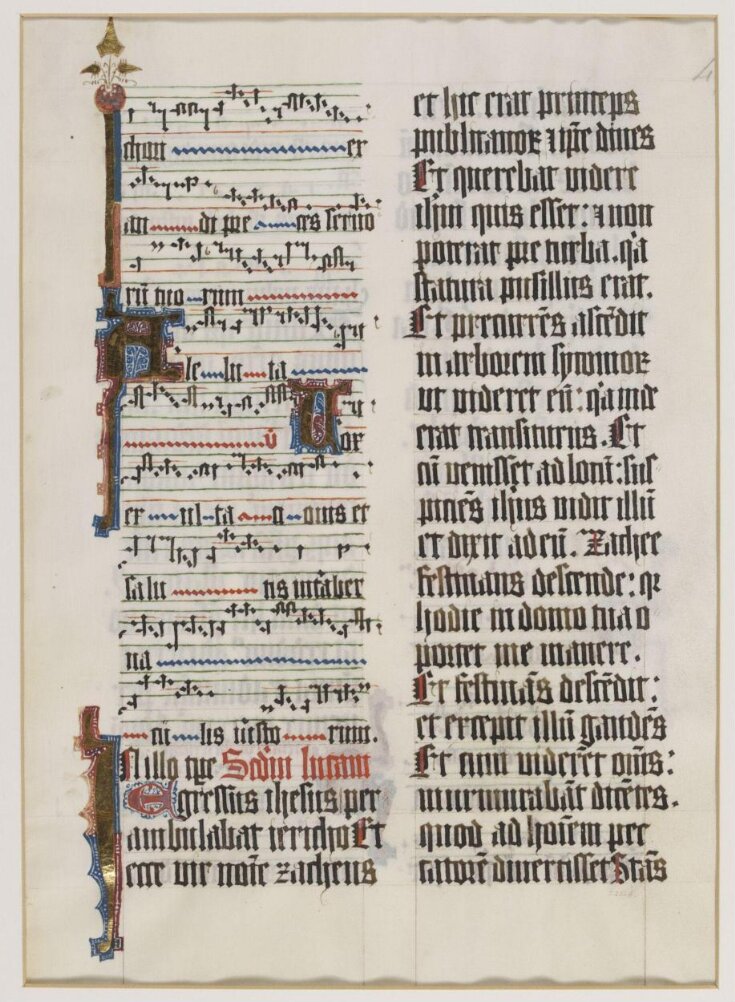 ex
au di pre ces servo
rū tuo rum
A le lu ia
v̄ Vox
ex ul ta ci onis et
salu tis in taber
na
cu lis iusto rum.
In illo tp̄e Scd̄m lucam
Egressus ihesus per
ambulabat iericho Et
ecce vir noīe zacheus
et hic erat princeps
publicanoꝝ ⁊ ip̄e dives
Et querebat videre
ihm̄ quis esset: ⁊ non
poterat pre turba. q̄a
statura pusillus erat.
Et precurrēs ascēdit
in arborem sycomoꝝ
ut videret eū: q̄a inde
erat transiturus. Et
cū venisset ad locū: sus
piciēs ihūs vidit illū
et dixit ad eū. Zachee
festinans descende: q̄
hodie in domo tua o
portet me manere.
Et festinās descēdit:
et excepit illū gaudēs
Et cum viderēt om̄s:
murmurabāt dicētes.
quod ad hoīem pec
catorē divertisset Stās